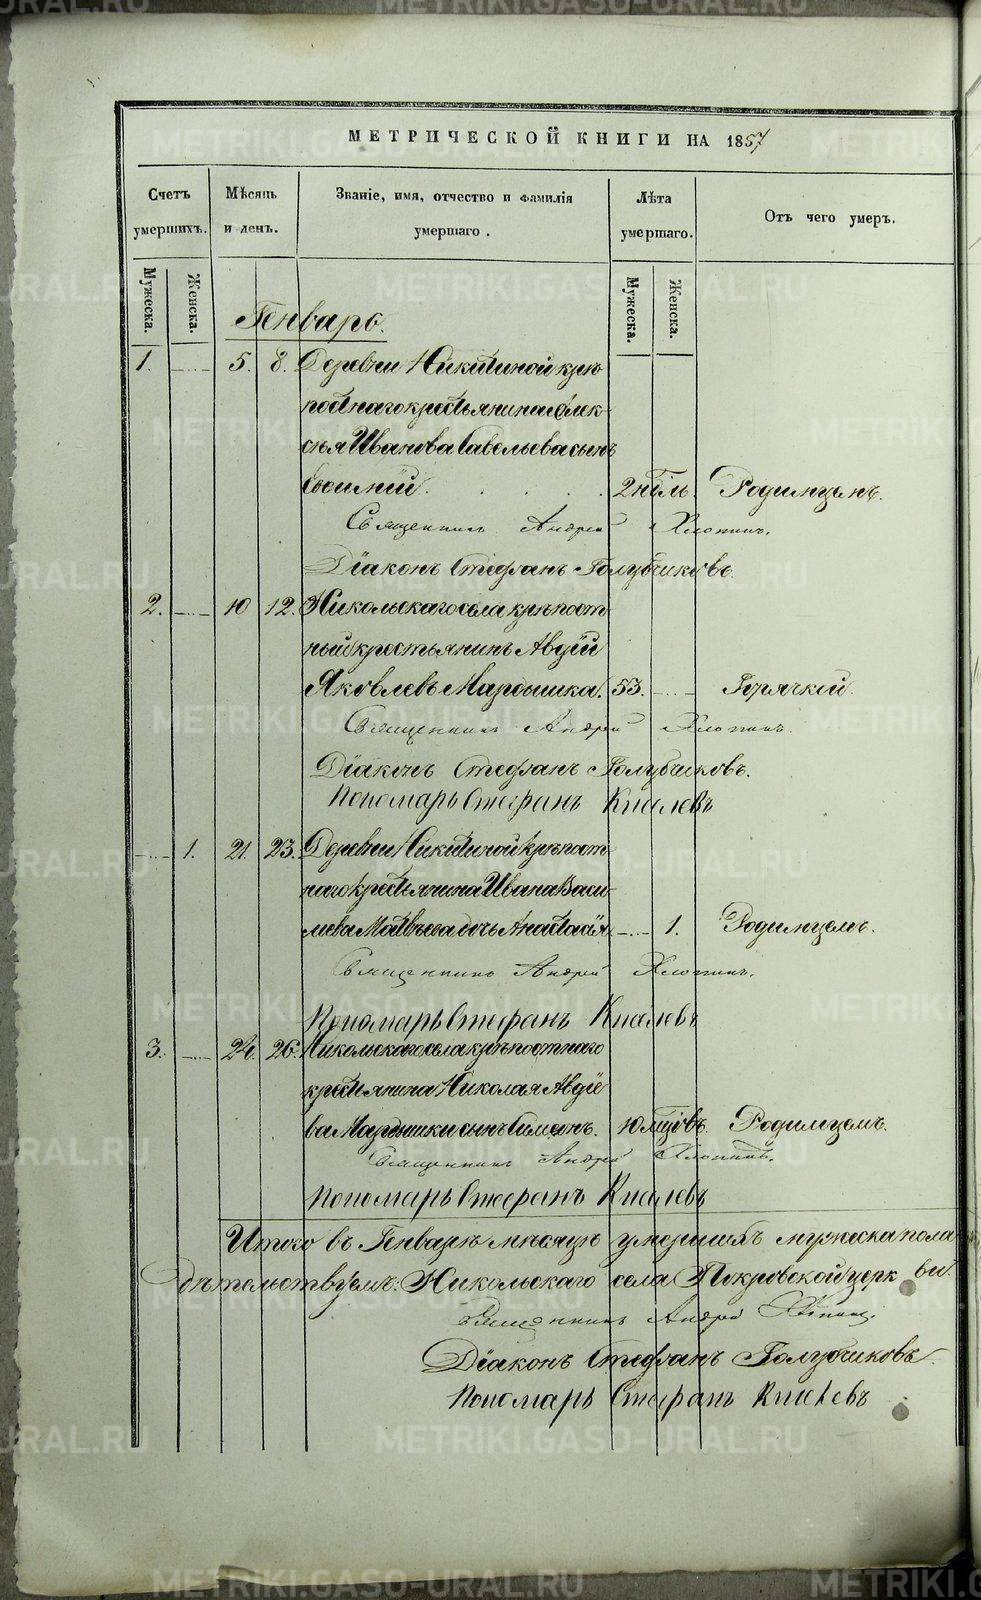 МЕТРИЧЕСКОЙ КНИГИ НА 1857
Счетъ умершихъ.
Мѣсяцъ и день.
Званіе, имя, отчество и фамилія умершаго.
Лѣта умершаго.
Отъ чего умеръ.
Мужеска. Женска. Мужеска. Женска.
Генварь.
1. 5. 8. Деревни Никитиной крѣ
постнаго крестьянина Алек-
сѣя Иванова Савельева сынъ
2 нѣдль. Родимцемъ.
Священникъ Андрей Хлопинъ.
Діаконъ Стефанъ Голубчиковъ.
2. 10 12. Никольскаго села крѣпост
ный крестьянинъ Авдій
Яковлевъ Мардышка. 53. Горячкой.
Священникъ Андрей Хлопинъ.
Діаконъ Стефанъ Голубчиковъ.
Пономарь Стефанъ Кпалевъ
1. 21. 23. Деревни Никитиной крѣпост
наго крестьянина Ивана Васи
льева Матвѣева дочь Анастасія 1. Родимцемъ.
Священникъ Андрей Хлопинъ.
Пономарь Стефанъ
3. 24. 26. Никольскаго села крѣпостнаго
крестьянина Николая Авдіе
ва Мардышки сынъ Симеонъ. 10 мѣсцовъ. Родимцемъ.
Священникъ Андрей Хлопинъ.
Пономарь Стефанъ
Итого въ Генварѣ мѣсяцѣ умершихъ мужеска пола
дѣтельствуемъ: Никольскаго села Покровской церкви.
Священникъ Андрей Хлопинъ.
Діаконъ Стефанъ Голубчиковъ.
Пономарь Стефанъ
METRIKI.GASO-URAL.RU